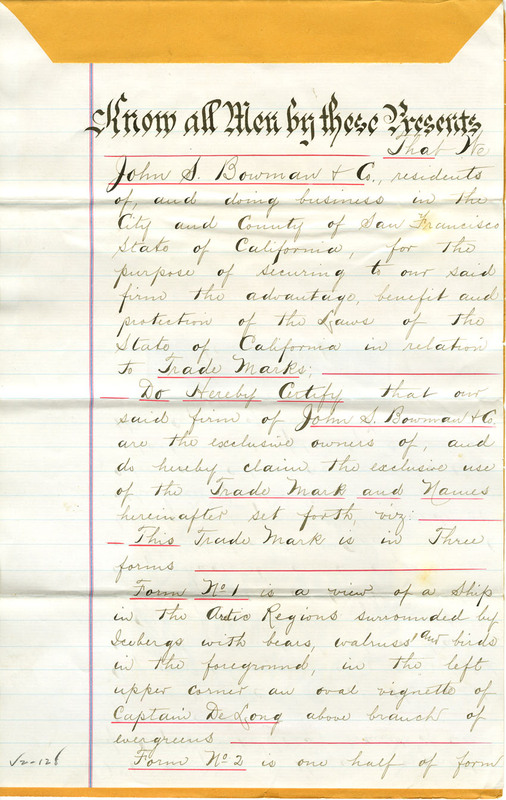 Know all Men by these Presents
That We
John S. Bowman & Co., residents
of, and doing business in the
City and County of San Francisco
State of California, for the
purpose of securing to our said
firm the advantage, benefit and
protection of the Laws of the
State of California in relation
to Trade Marks;
Do Hereby Certify that our
said firm of John S. Bowman & Co.
are the exclusive owners of, and
do hereby claim the exclusive use
of the Trade Mark and Names
hereinafter set forth, viz:
This Trade Mark is in Three
forms
Form No. 1 is a view of a Ship
in the Arctic Regions surrounded by
Icebergs with bears, walruss and birds
in the foreground, in the left
upper corner an oval vignette of
Captain De Long above branch of
evergreens
Form No. 2 is one half of form